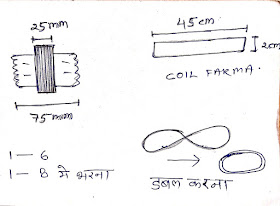 25mm
75mm
45cm
2cm
COIL FARMA.
1 — 6
1 — 8 मे भरना
डबल करना